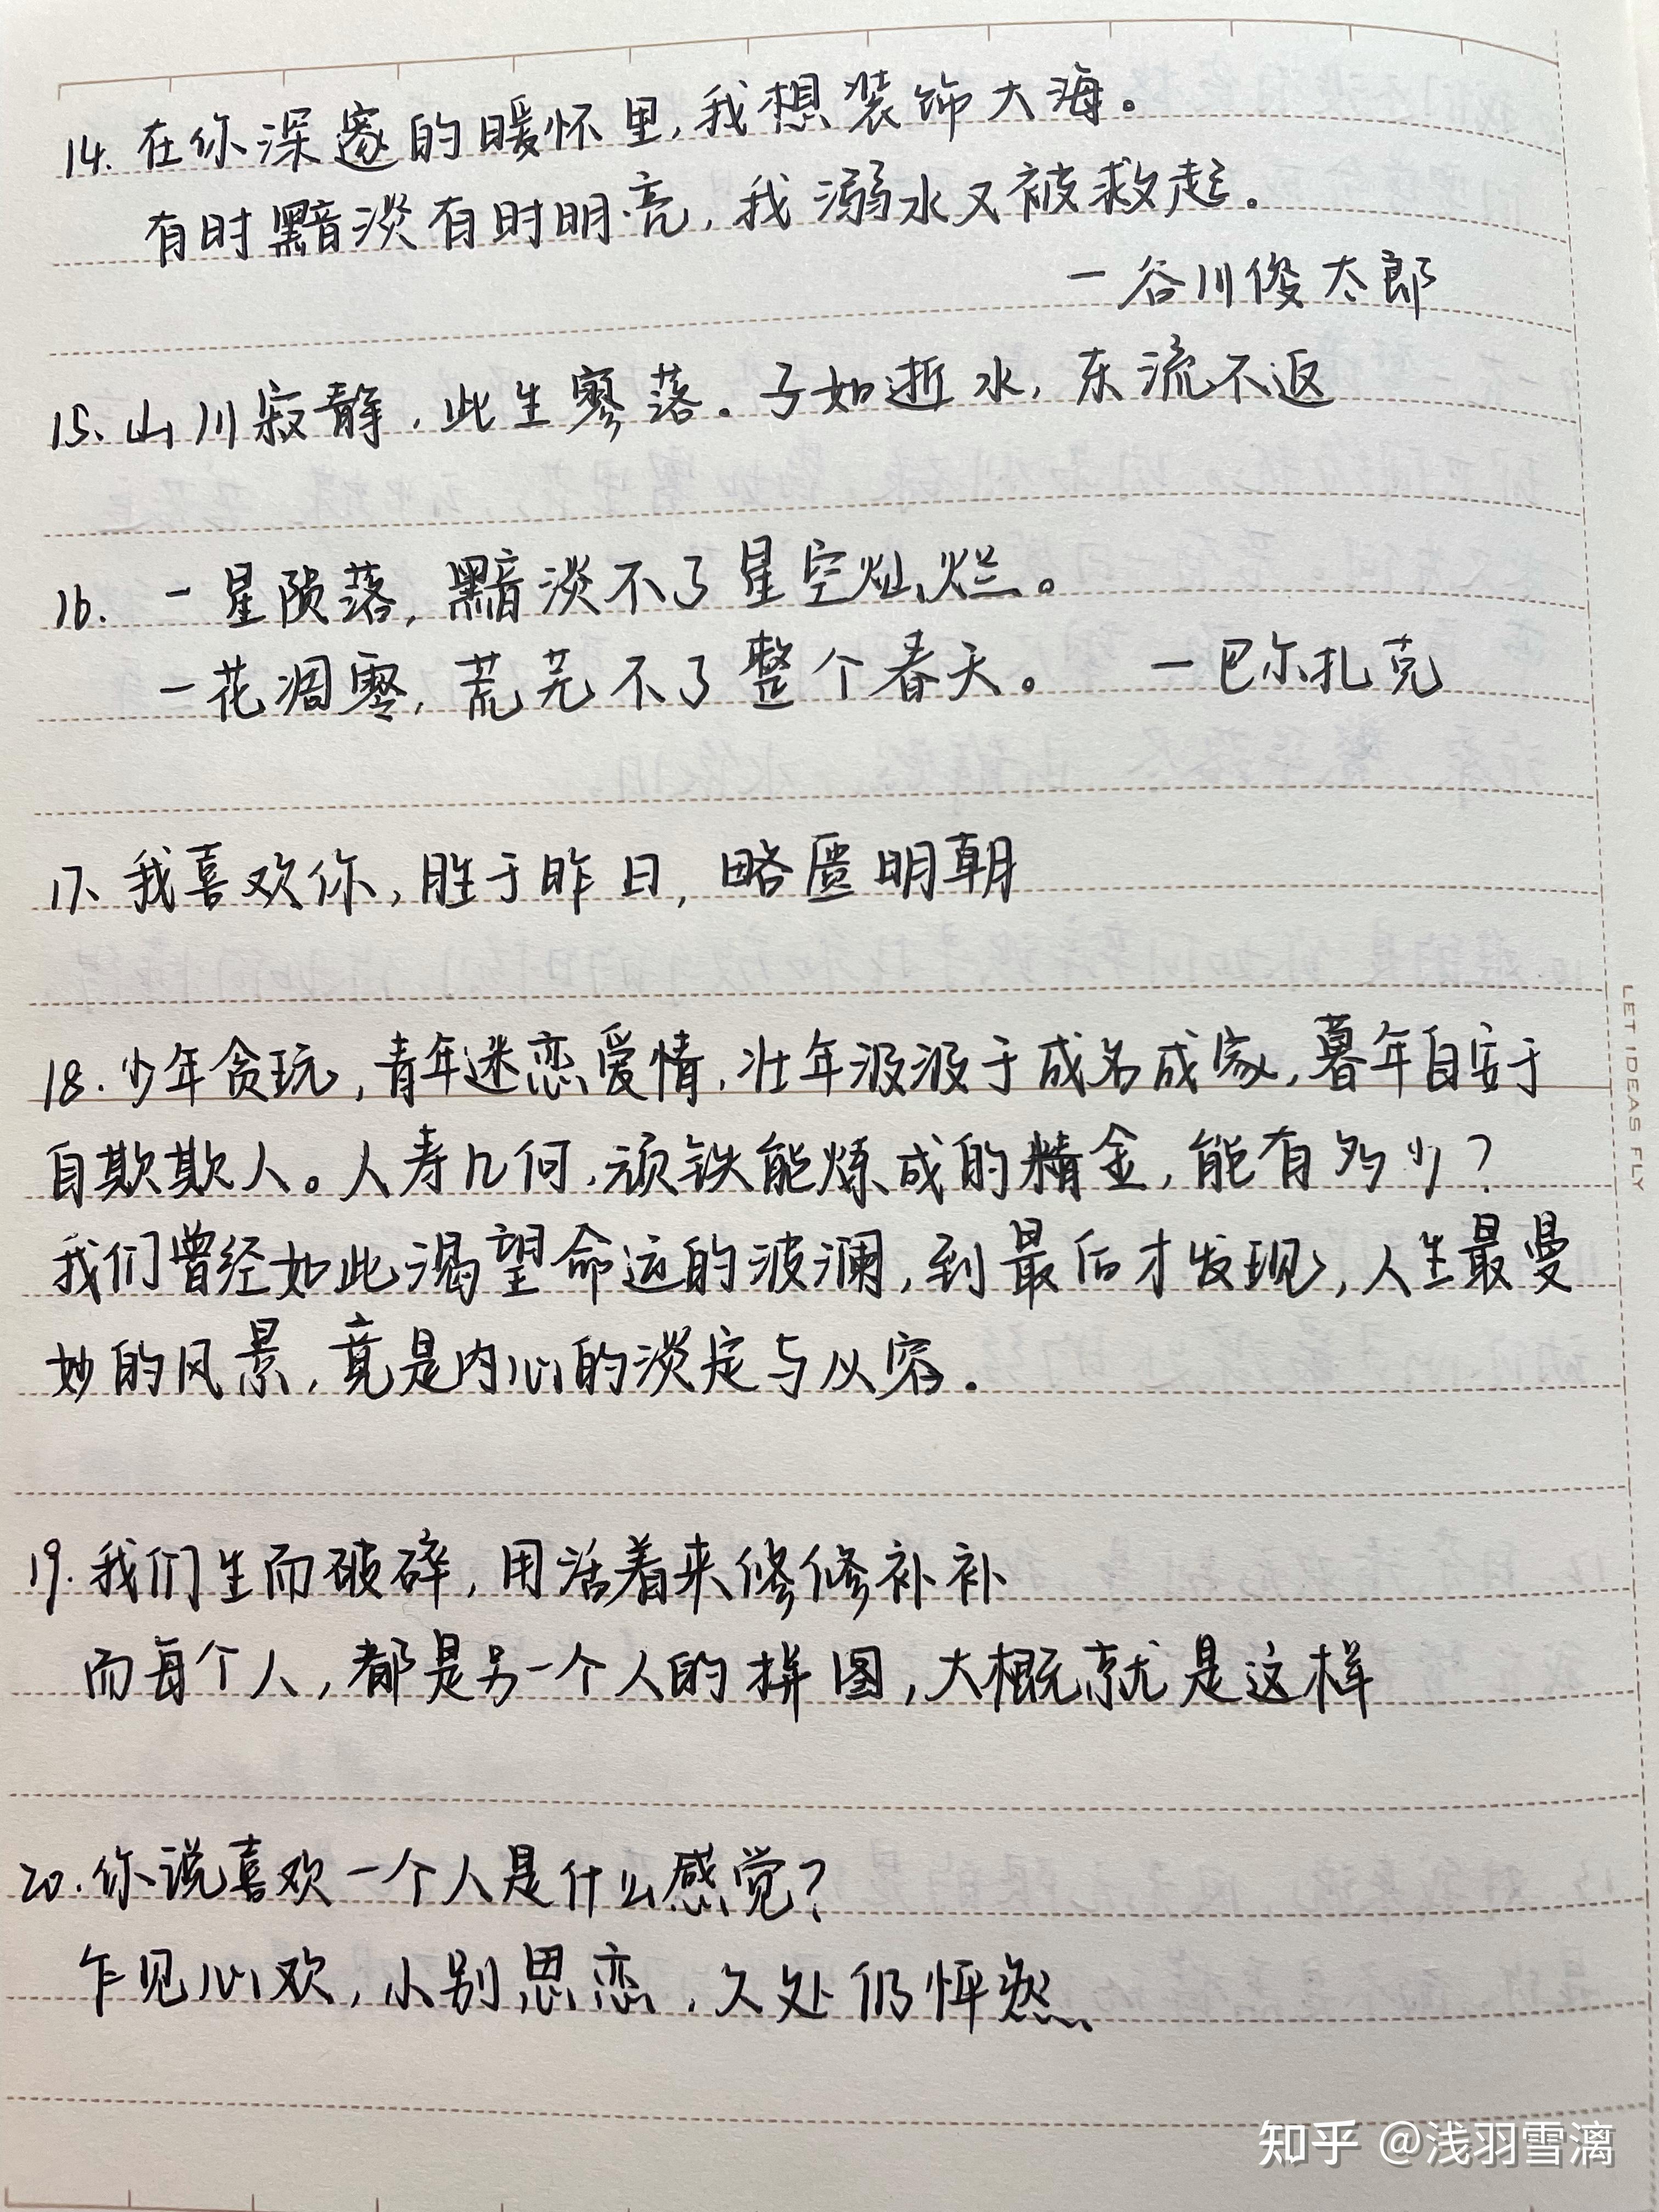 14. 在你深邃的暖怀里,我想装饰大海。
有时黯淡有时明亮,我溺水又被救起。
一谷川俊太郎
15. 山川寂静,此生寥落。子如逝水,东流不返
16. 一星陨落,黯淡不了星空灿烂。
一花凋零,荒芜不了整个春天。 一巴尔扎克
17、我喜欢你,胜于昨日,略匮明朝
18.少年贪玩,青年迷恋爱情,壮年汲汲于成名成家,暮年自安于
自欺欺人。人寿几何,顽铁能炼成的精金,能有多少?
我们曾经如此渴望命运的波澜,到最后才发现,人生最曼
妙的风景,竟是内心的淡定与从容.
19.我们生而破碎,用活着来修修补补
而每个人,都是另一个人的拼图,大概就是这样
20.你说喜欢一个人是什么感觉?
乍见心欢,小别思恋,久处仍怦然、
LET IDEAS FLY
知乎 @浅羽雪漓